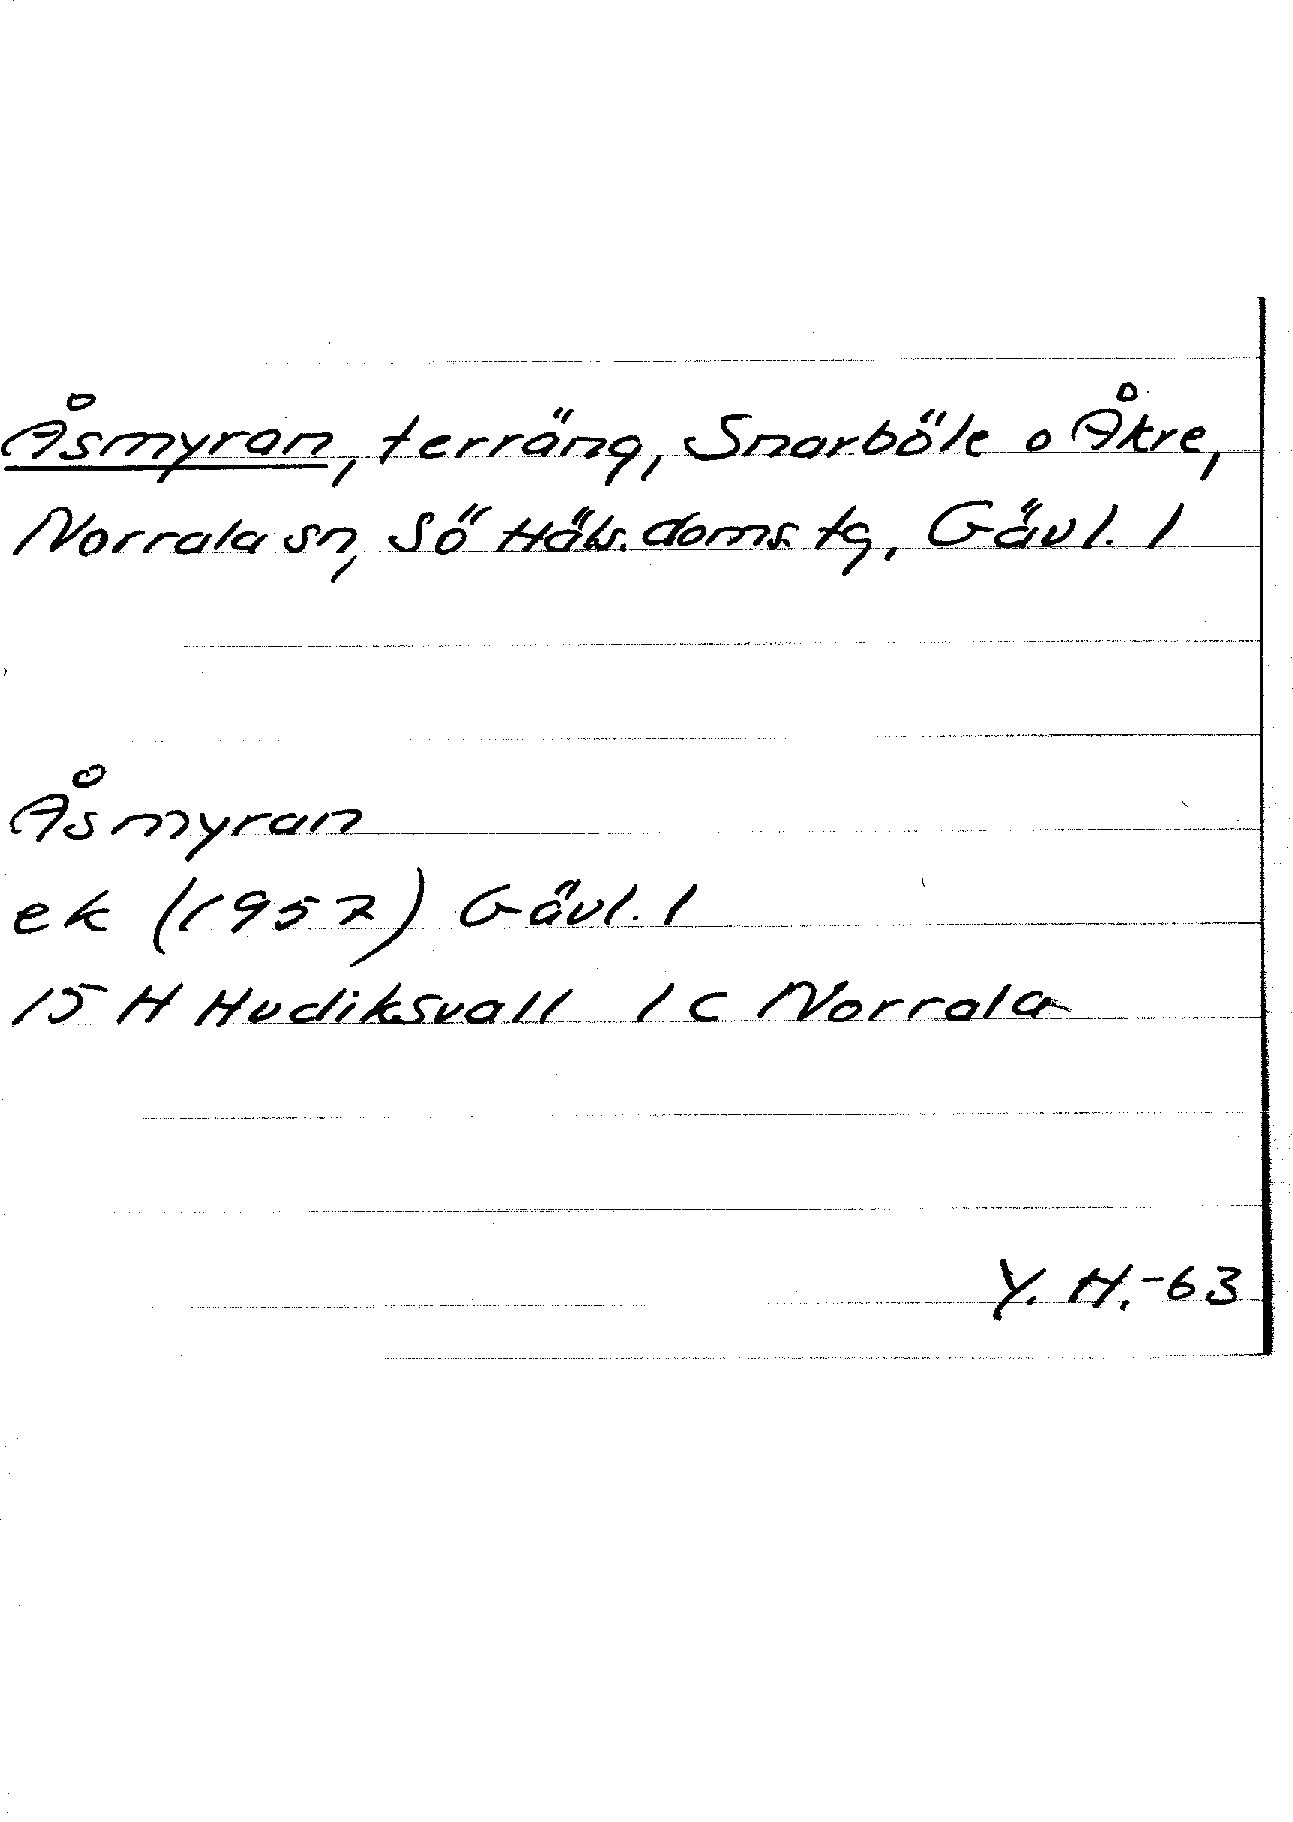 Åsmyran, terräng, Snarböle o Åkre,
Norrala sn, Sö Häls. doms. tg, Gävl. l
Åsmyran
ek (1957) Gävl. l
15 H Hudiksvall 1 c Norrala
Y. H. -63